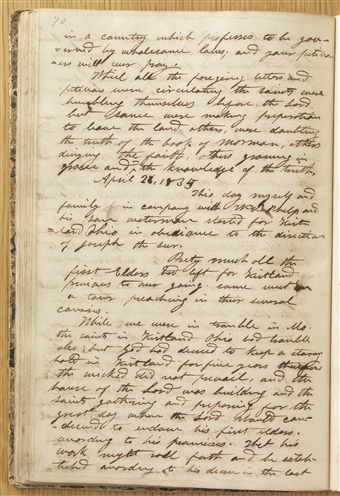 70
in a country which professes to be gov-
erned by wholesome laws; and your petition
ners will ever pray.
Whil all the foregoing letters and
petitions were circulating the saints were
humbling themselves before the Lord,
but some were making preparation
to leave the land, others, were doubting
the truth of the book of mormon, others
denying the faith, others growing in
grace and in the knowledge of the truth.
April 28, 1835
This day myself and
family in company with W. W. Phelps and
his son waterman started for Kirt-
land Ohio in obediance to the direction
of Joseph the seer.
Prety much all the
first Elders had left for Kirtland
previous to our going some went on
a tour preaching in their several
courses.
While we were in trouble in Mo.
the saints in Kirtland Ohio had trouble
also, but God had decreed to keep a strong
hold in Kirtland for five years therefore
the wicked did not prevail, and the
house of the Lord was building and the
saints gathering and preparing for the
great day when the Lord should con-
decend to endow his first elders.
according to his promises. Yet his
work might roll forth and be estab
lished according to his decree in the last